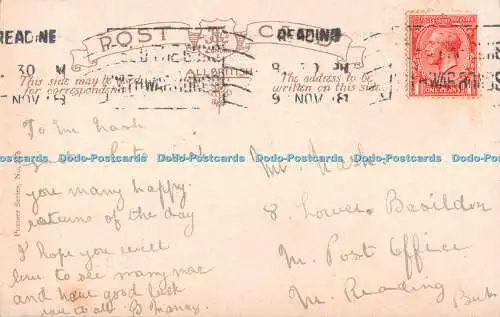 READING
READING
POST CARD
FEED THE GUNS
ALL BRITISH
WITH WAR BONDS
WITH WAR BONDS
30 M
NOV 18
8 30 PM
9 NOV 18
This side may be used for correspondence
The address to be written on this side.
ONE PENNY
Pioneer Series, No.
To Mr Nash
Dodo-Postcards Dodo-Postcards Dodo-Postcards Dodo-Postcards Dodo-Postcards Dodo-Postcards Dodo-Postcards Dodo-Postcards
you many happy
returns of the day
I hope you will
live to see many more
and have good luck
love to all
Mr Nash
8. Lower Basildon
Nr. Post Office
Nr. Reading
Berks